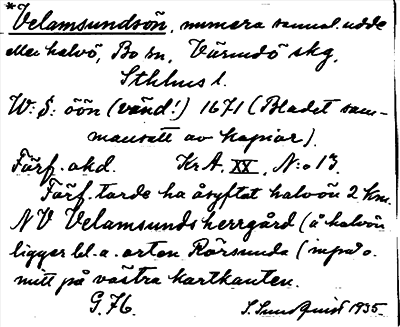 *Velamsundsön, numera sannol. udde
eller halvö, Bo sn, Värmdö skg,
Sthlms l.
W: S: öön (vänd!) 1671 (Bladet sam-
mansatt av kopior).
Förf. okd. Kr A. XX, N:o 13.
Förf. torde ha åsyftat halvön 2 km.
NV Velamsunds herrgård (å halvön
ligger bl.a. orten Rörsunda (inprat o.
mitt på västra kartkanten.
G. 76. S. Sundquist 1935.